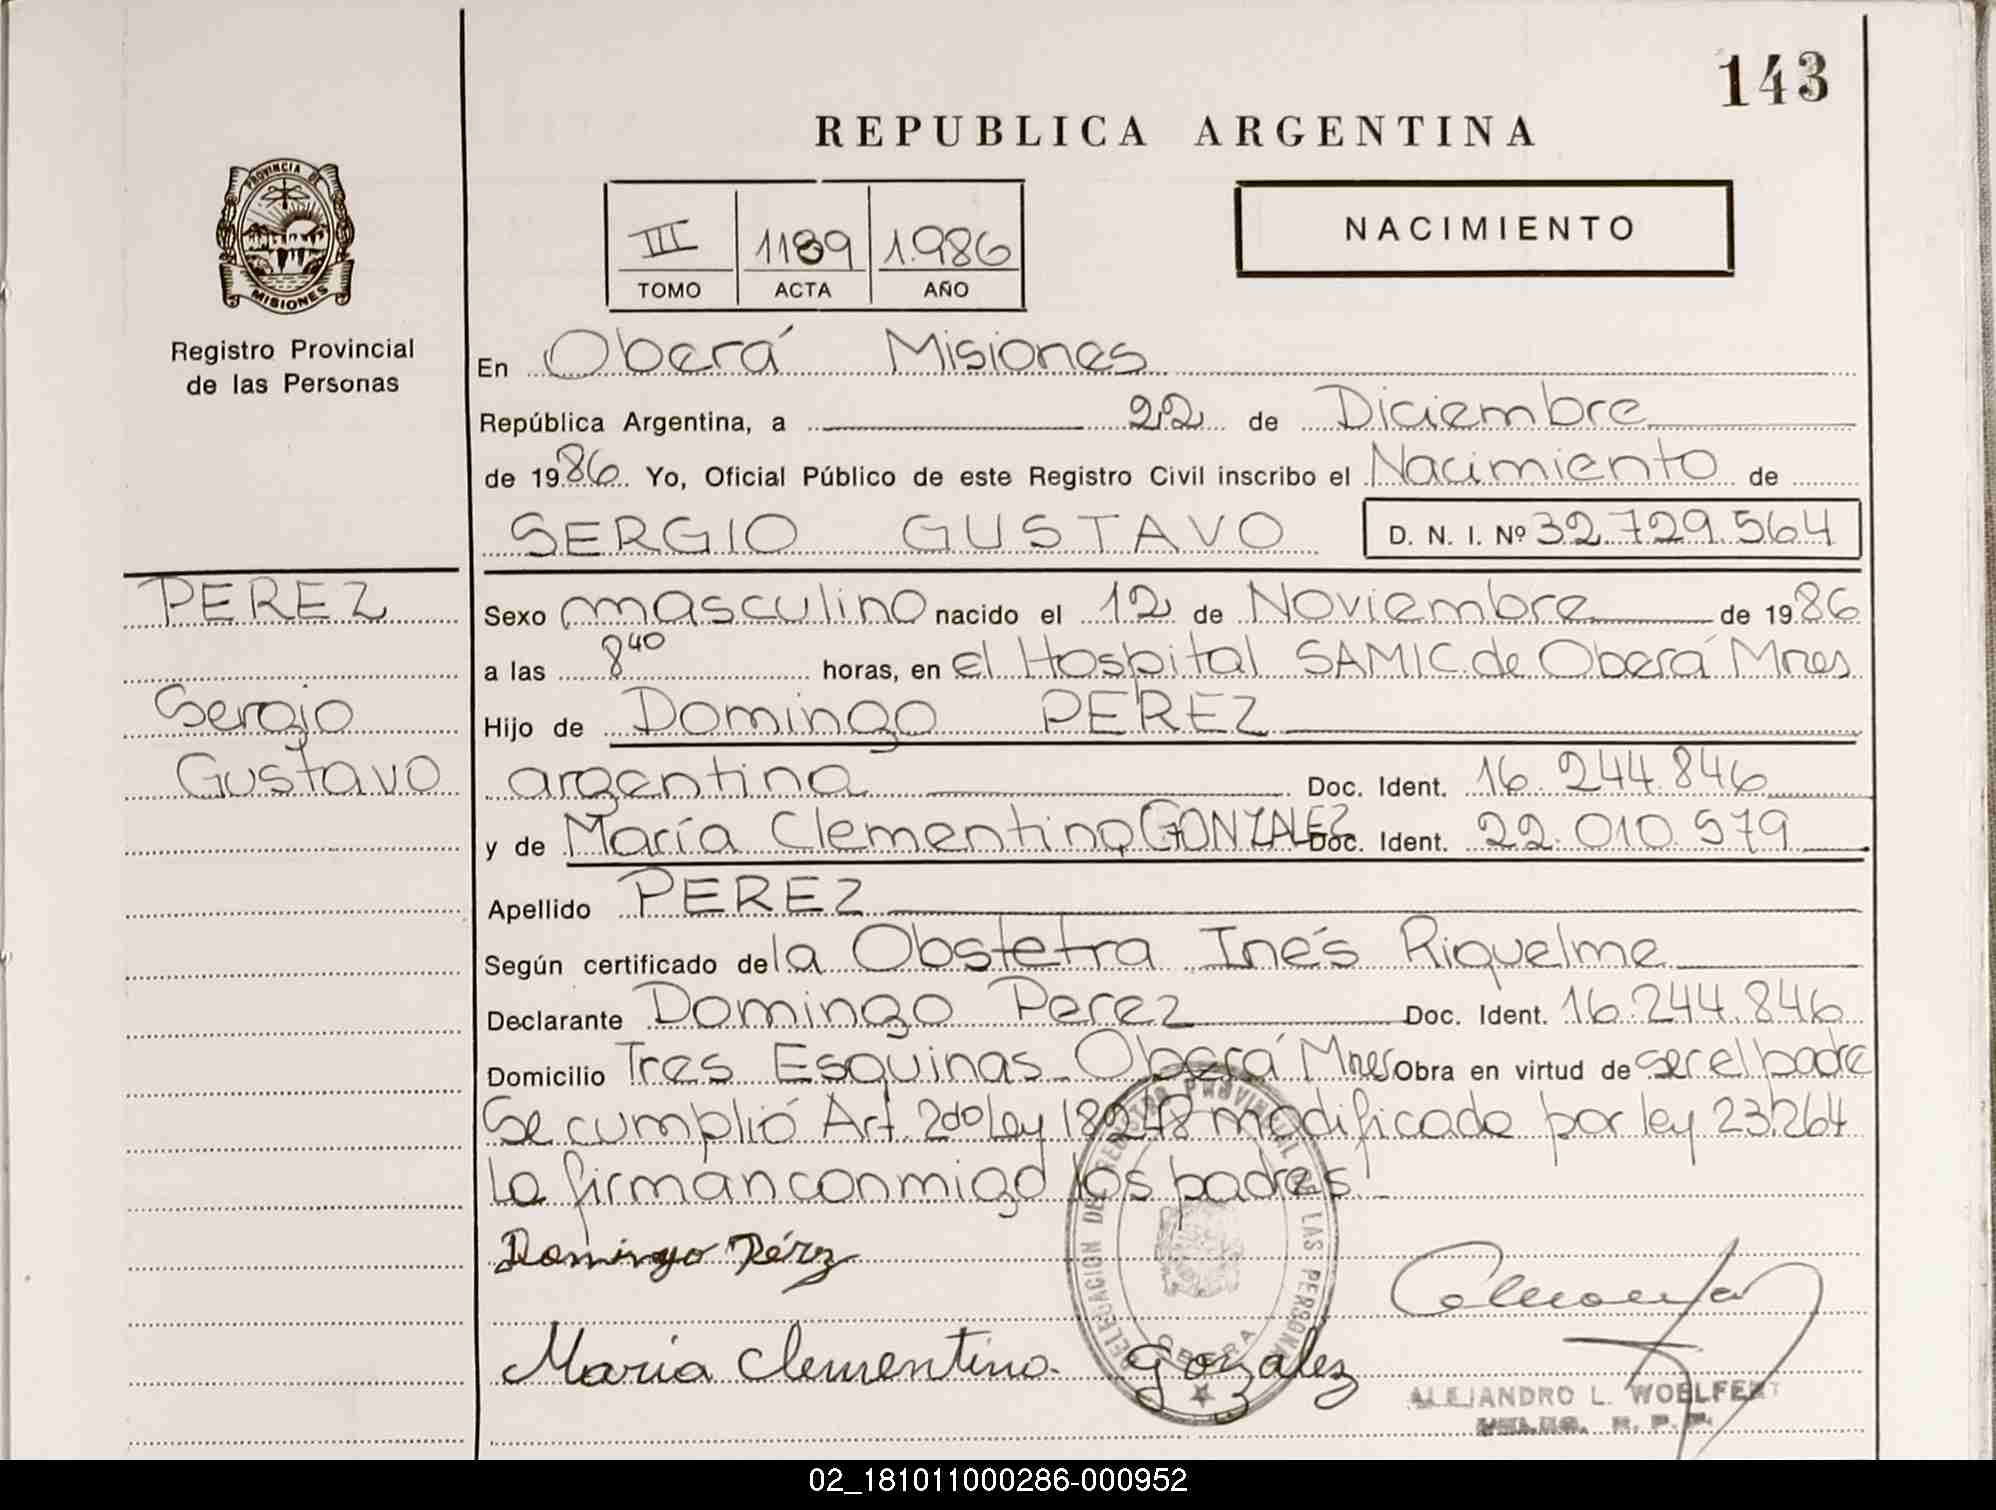 143
REPUBLICA ARGENTINA
PROVINCIA DE
MISIONES
Registro Provincial
de las Personas
III 1189 1.986
TOMO ACTA AÑO
NACIMIENTO
En Oberá Misiones
República Argentina, a 22 de Diciembre
de 1986 Yo, Oficial Público de este Registro Civil inscribo el Nacimiento de
SERGIO GUSTAVO D. N. I. Nº 32.729.564
PEREZ
Sergio
Gustavo
Sexo masculino nacido el 12 de Noviembre de 1986
a las 8 40 horas, en el Hospital SAMIC de Oberá Mnes
Hijo de Domingo PEREZ
argentina Doc. Ident. 16.244.846
y de María Clementina GONZALEZ Doc. Ident. 22.010.579
Apellido PEREZ
Según certificado de la Obstetra Inés Riquelme
Declarante Domingo Perez Doc. Ident. 16.244.846
Domicilio Tres Esquinas Oberá Mnes Obra en virtud de ser el padre
Se cumplió Art. 2do Ley 18248 modificada por ley 23.264
La firman conmigo los padres
Domingo Pérez
María Clementina Gozalez
DELEGACION DEL REGISTRO PROVINCIAL DE LAS PERSONAS
OBERA
ALEJANDRO L. WOELFERT
02_181011000286-000952